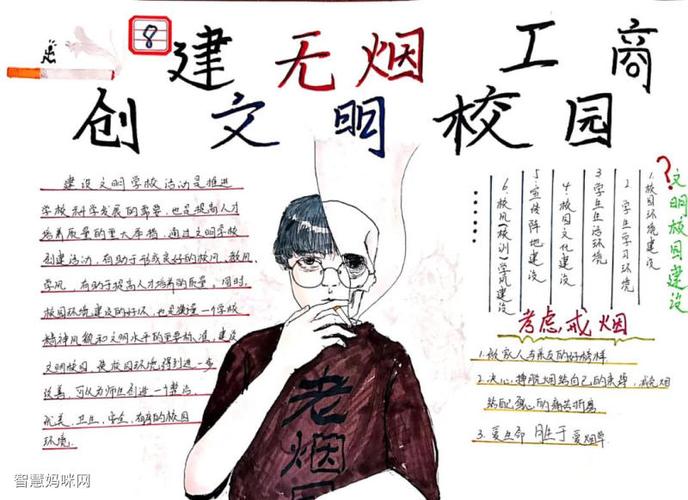 8
建 无烟 工商
创文明校园
建设文明学校活动是推进
学校科学发展的需要,也是提高人才
培养质量的重大举措,通过文明学校
创建活动,有助于形成良好的校风、教风、
学风,有助于提高人才培养的质量,同时,
校园环境建设的好坏,也是衡量一个学校
精神风貌和文明水平的重要标准,建设
文明校园,使校园环境得到进一步
改善,可以为师生创造一个整洁、
优美、卫生、安全、有序的校园
环境。
老烟
?文明校园建设
1.校园环境建设
2.学生学习环境
3.学生生活环境
4.校园文化建设
5.宣传阵地建设
6.校风(校训)学风建设
......
考虑戒烟
1.做家人与亲友的好榜样
2.决心:摆脱烟给自己的束缚,
给自己 的痛苦折磨
3.爱生命 胜于 爱烟草
智慧妈咪网